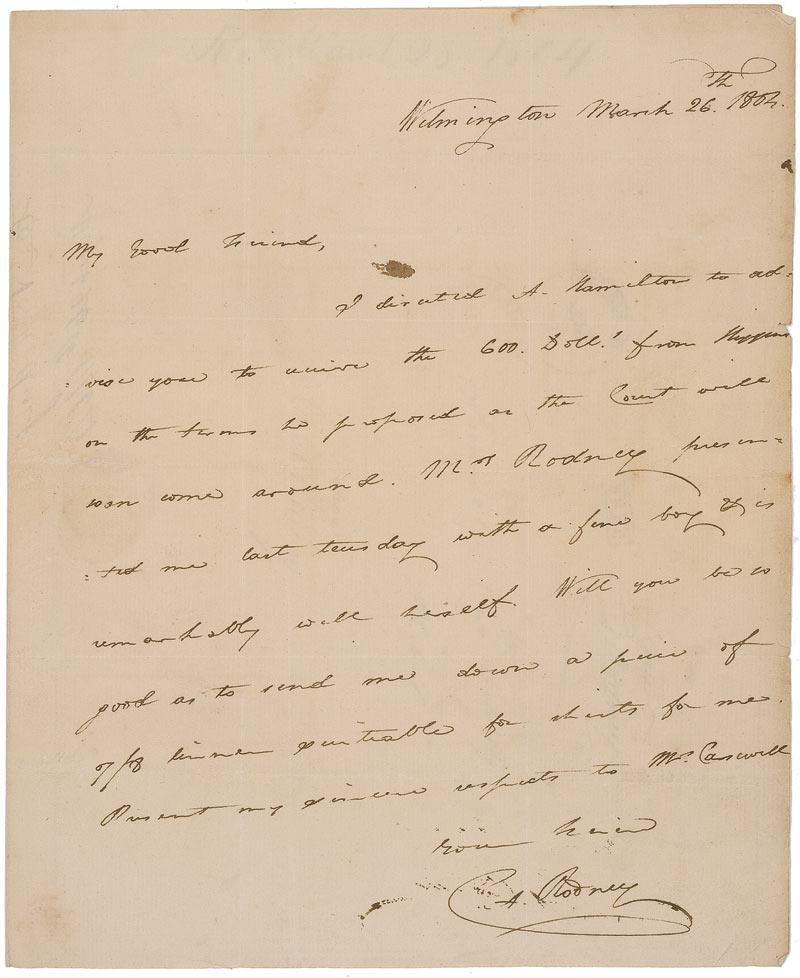 Wilmington March 26th. 1804.
My Good Friend,
I directed A. Hamilton to ad-
-vise you to receive the 600. Doll.s from Higgins
on the terms he proposed as the Court will
soon come around. Mrs Rodney presen-
-ted me last teusday with a fine boy & is
remarkably well herself. Will you be so
good as to send me down a piece of
7/8 linnen suiteable for shirts for me.
Present my sincere respects to Mrs. Carswell
Your Friend
C A Rodney